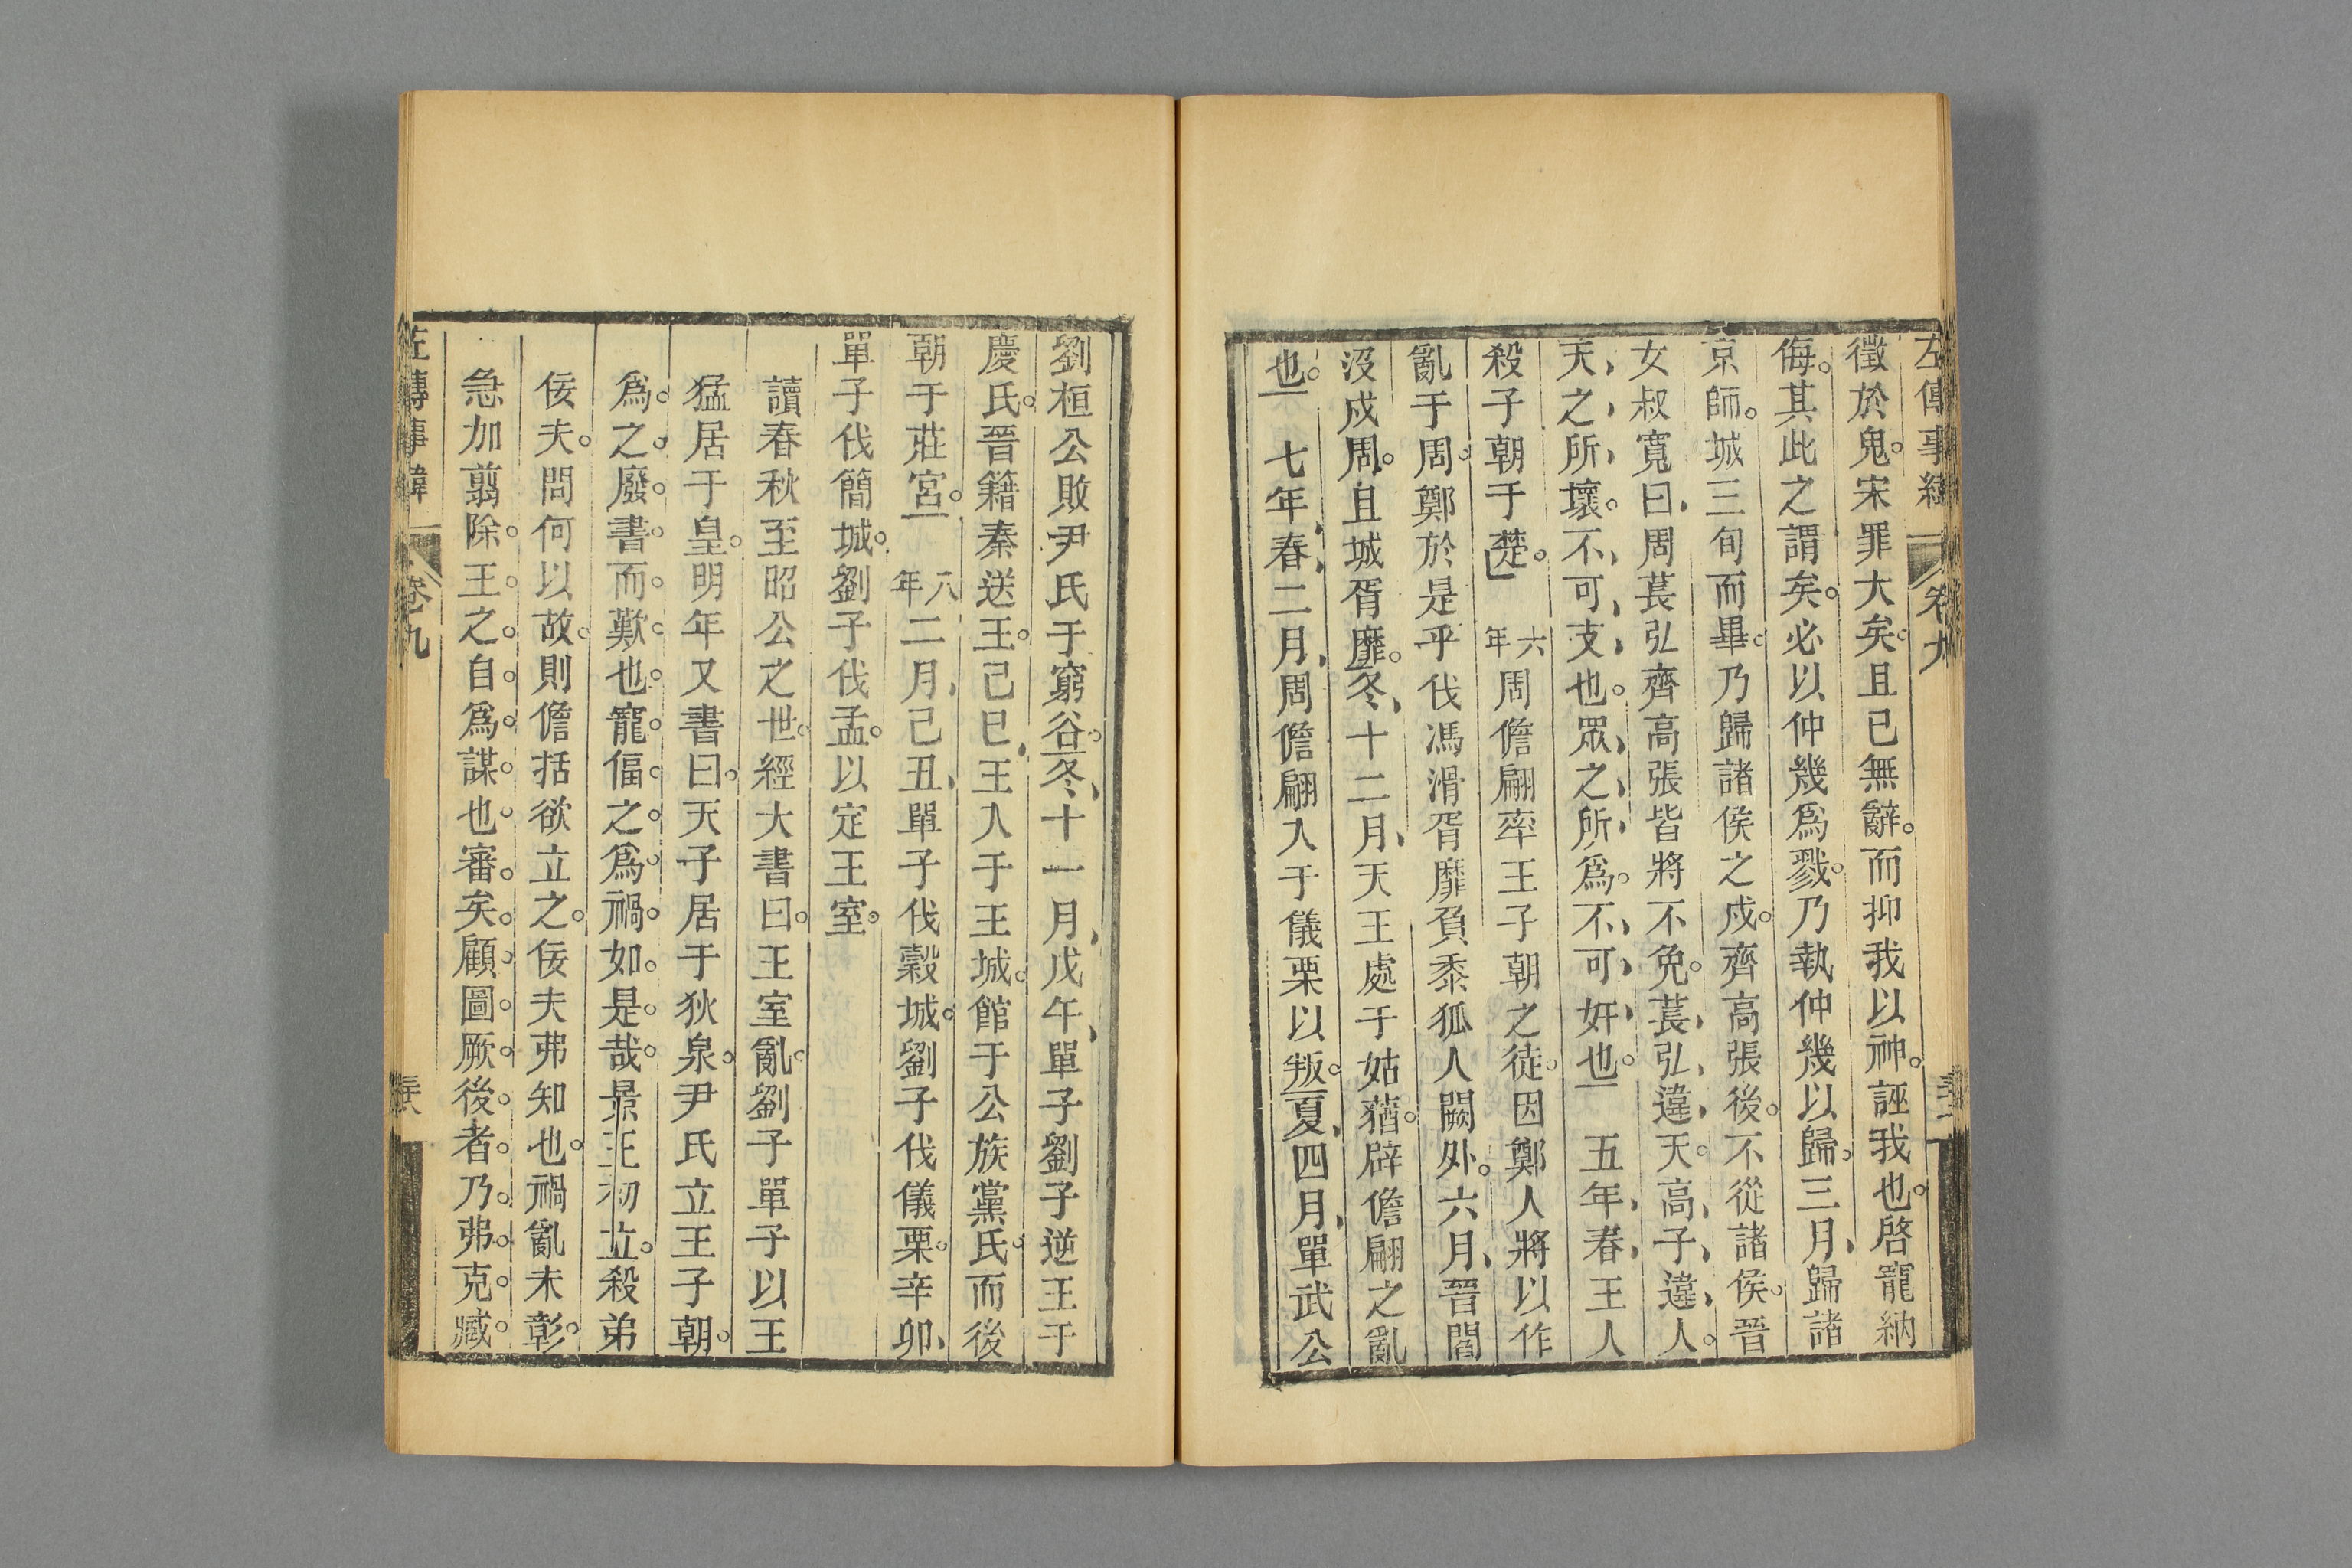 左傳事緯 卷九
徵於鬼。宋罪大矣。且已無辭。而抑我以神。誣我也。啓寵納
侮。其此之謂矣。必以仲幾爲戮。乃執仲幾以歸。三月、歸諸
京師。城三旬而畢。乃歸諸侯之戍。齊高張後。不從諸侯。晉
女叔寬曰、周萇弘齊高張皆將不免。萇、弘、違、天。高、子、違、人。
天、之、所、壞。不、可、支、也。眾、之、所、爲。不、可、奸、也。 五年、春、王人
殺子朝于楚。 六年周儋翩率王子朝之徒。因鄭人將以作
亂于周。鄭於是乎伐馮滑胥靡負黍狐人闕外。六月、晉閻
沒戍周。且城胥靡。冬、十二月、天王處于姑蕕。辟儋翩之亂
也。 七年、春、二月、周儋翩入于儀栗以叛。夏、四月、單武公
劉桓公敗尹氏于窮谷。冬、十一月、戊午、單子劉子逆王于
慶氏。晉籍秦送王。己巳、王入于王城。館于公族黨氏。而後
朝于莊宮。 八年二月、己丑、單子伐穀城。劉子伐儀栗。辛卯、
單子伐簡城。劉子伐孟。以定王室。
讀春秋至昭公之世。經大書曰。王室亂。劉子單子以王
猛居于皇。明年又書曰。天子居于狄泉。尹氏立王子朝。
爲。之。廢。書。而。歎。也。寵。偪。之。爲。禍。如。是。哉。景王初立。殺弟
佞夫。問何以故。則儋括欲立之。佞夫弗知也。禍亂未彰。
急加翦除。王。之。自。爲。謀。也。審。矣。顧。圖。厥。後。者。乃。弗。克。臧。
左傳事緯 卷九